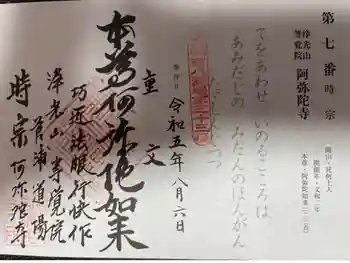 第七番 時宗
浄光山
等覚院
阿弥陀寺
開山・其阿上人
開創年・文和二年
本尊・阿弥陀如来
てをあわせ いのるこころは
あみだじの みだのほんがん
奉拝日
令和五年八月六日
重文
本尊阿弥陀如来
巧匠法眼行快作
浄光山 等覚院
菅浦道場
時宗 阿弥陀寺